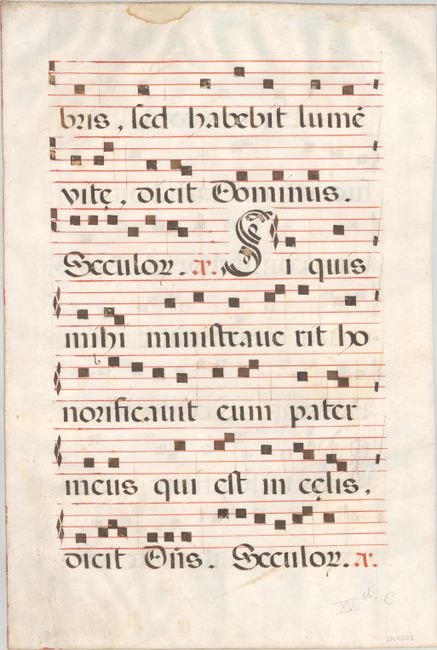 bris, sed habebit lumē
vitę, dicit Dominus.
Seculoꝝ. a. Si quis
mihi ministraue rit ho
norificauit eum pater
meus qui est in cęlis,
dicit Dn̄s. Seculoꝝ. a.
C